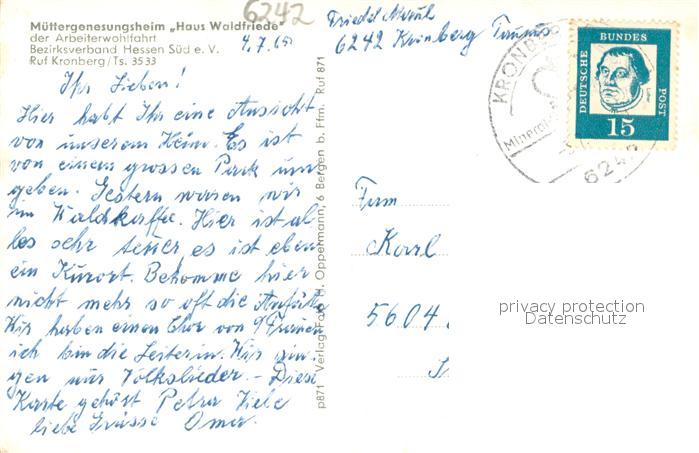 6242
Müttergenesungsheim „Haus Waldfriede"
der Arbeiterwohlfahrt
Bezirksverband Hessen Süd e. V.
Ruf Kronberg/Ts. 3533
4.7.65
Ihr Lieben!
Hier habt Ihr eine Ansicht
von unserem Heim. Es ist
von einem grossen Park um
geben. Gestern waren wir
im Waldkaffee. Hier ist al
les sehr teuer es ist eben
ein Kurort. Bekomme hier
nicht mehr so oft die Anfälle
Wir haben einen Chor von 9 Frauen
ich bin die Leiterin. Wir sin
gen nur Volkslieder. - Diese
Karte gehört Petra Viele
liebe Grüsse Oma.
p871 Verlag Foto H. Oppermann, 6 Bergen b. Ffm. Ruf 871
Friedel
6242 Kronberg Taunus
KRONBERG
Mineral
6242
DEUTSCHE BUNDES POST
15
Fam
Karl
5604
privacy protection
Datenschutz